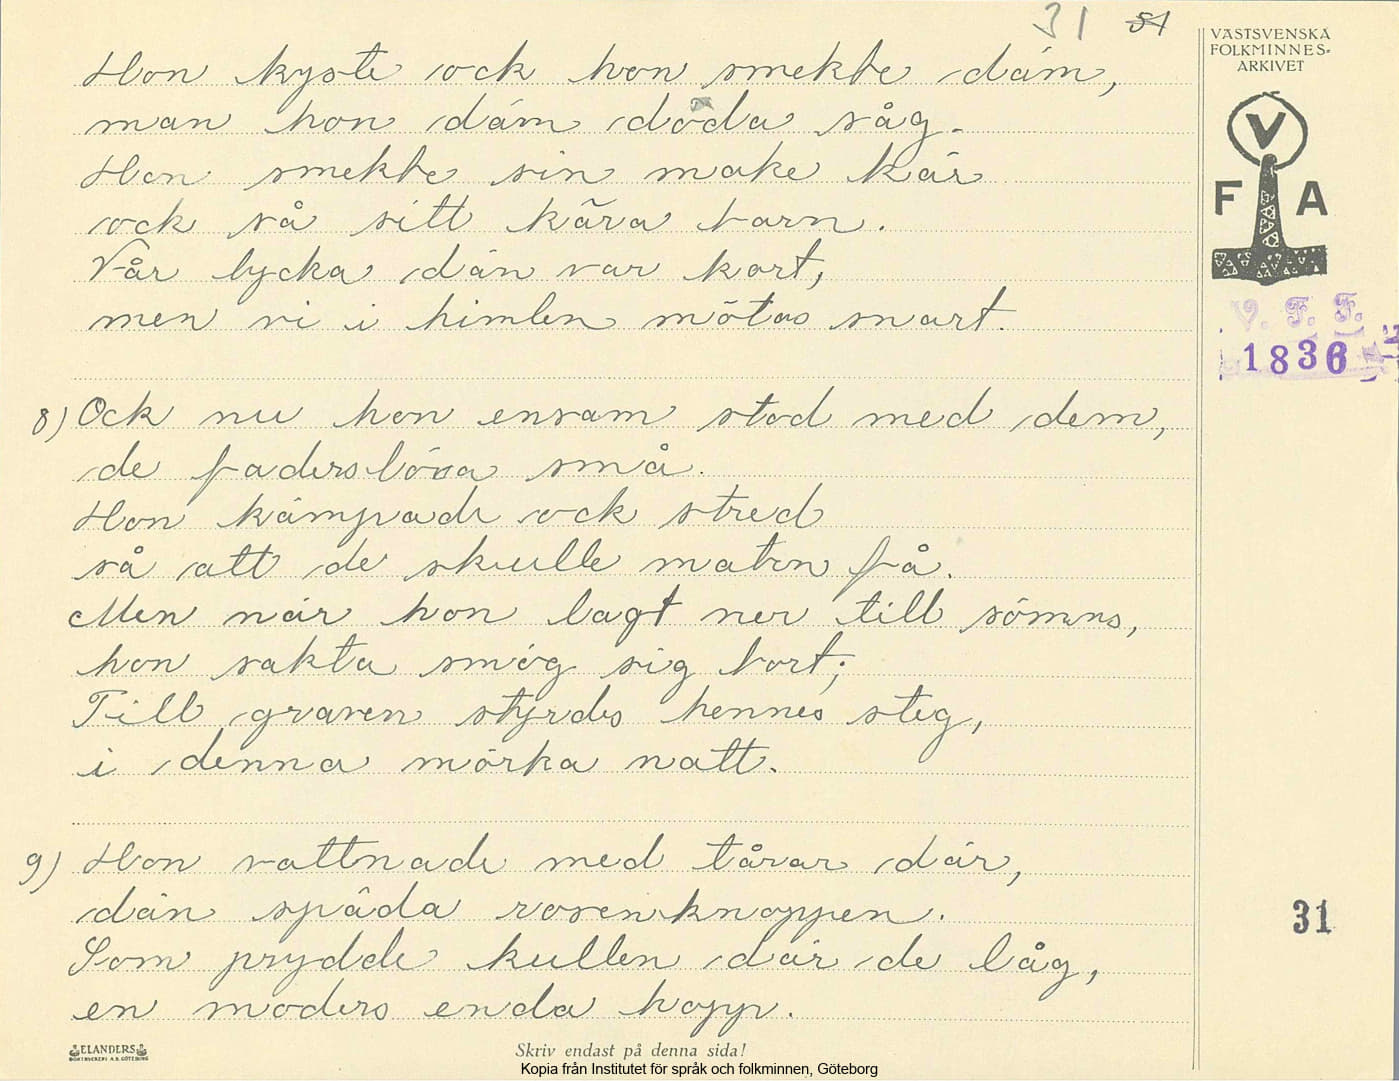 31 51
VÄSTSVENSKA
FOLKMINNES-
ARKIVET
V
F A
V. F. F.
1836
Hon kyste ock hon smekte däm,
man hon däm döda såg.
Hon smekte sin make kär
ock så sitt kära barn.
Vår lycka dän var kort,
men vi i himlen mötas snart.
8) Ock nu hon ensam stod med dem,
de faderslösa små.
Hon kämpade ock stred
så att de skulle maten få.
Men när hon lagt ner till sömns,
hon sakta smög sig bort;
Till graven styrdes hennes steg,
i denna mörka natt.
9) Hon vattnade med tårar där,
dän späda rosenknoppen.
Som prydde kullen där de låg,
en moders enda hopp.
31
ELANDERS
BOKTRYCKERI A.B. GÖTEBORG
Skriv endast på denna sida!
Kopia från Institutet för språk och folkminnen, Göteborg